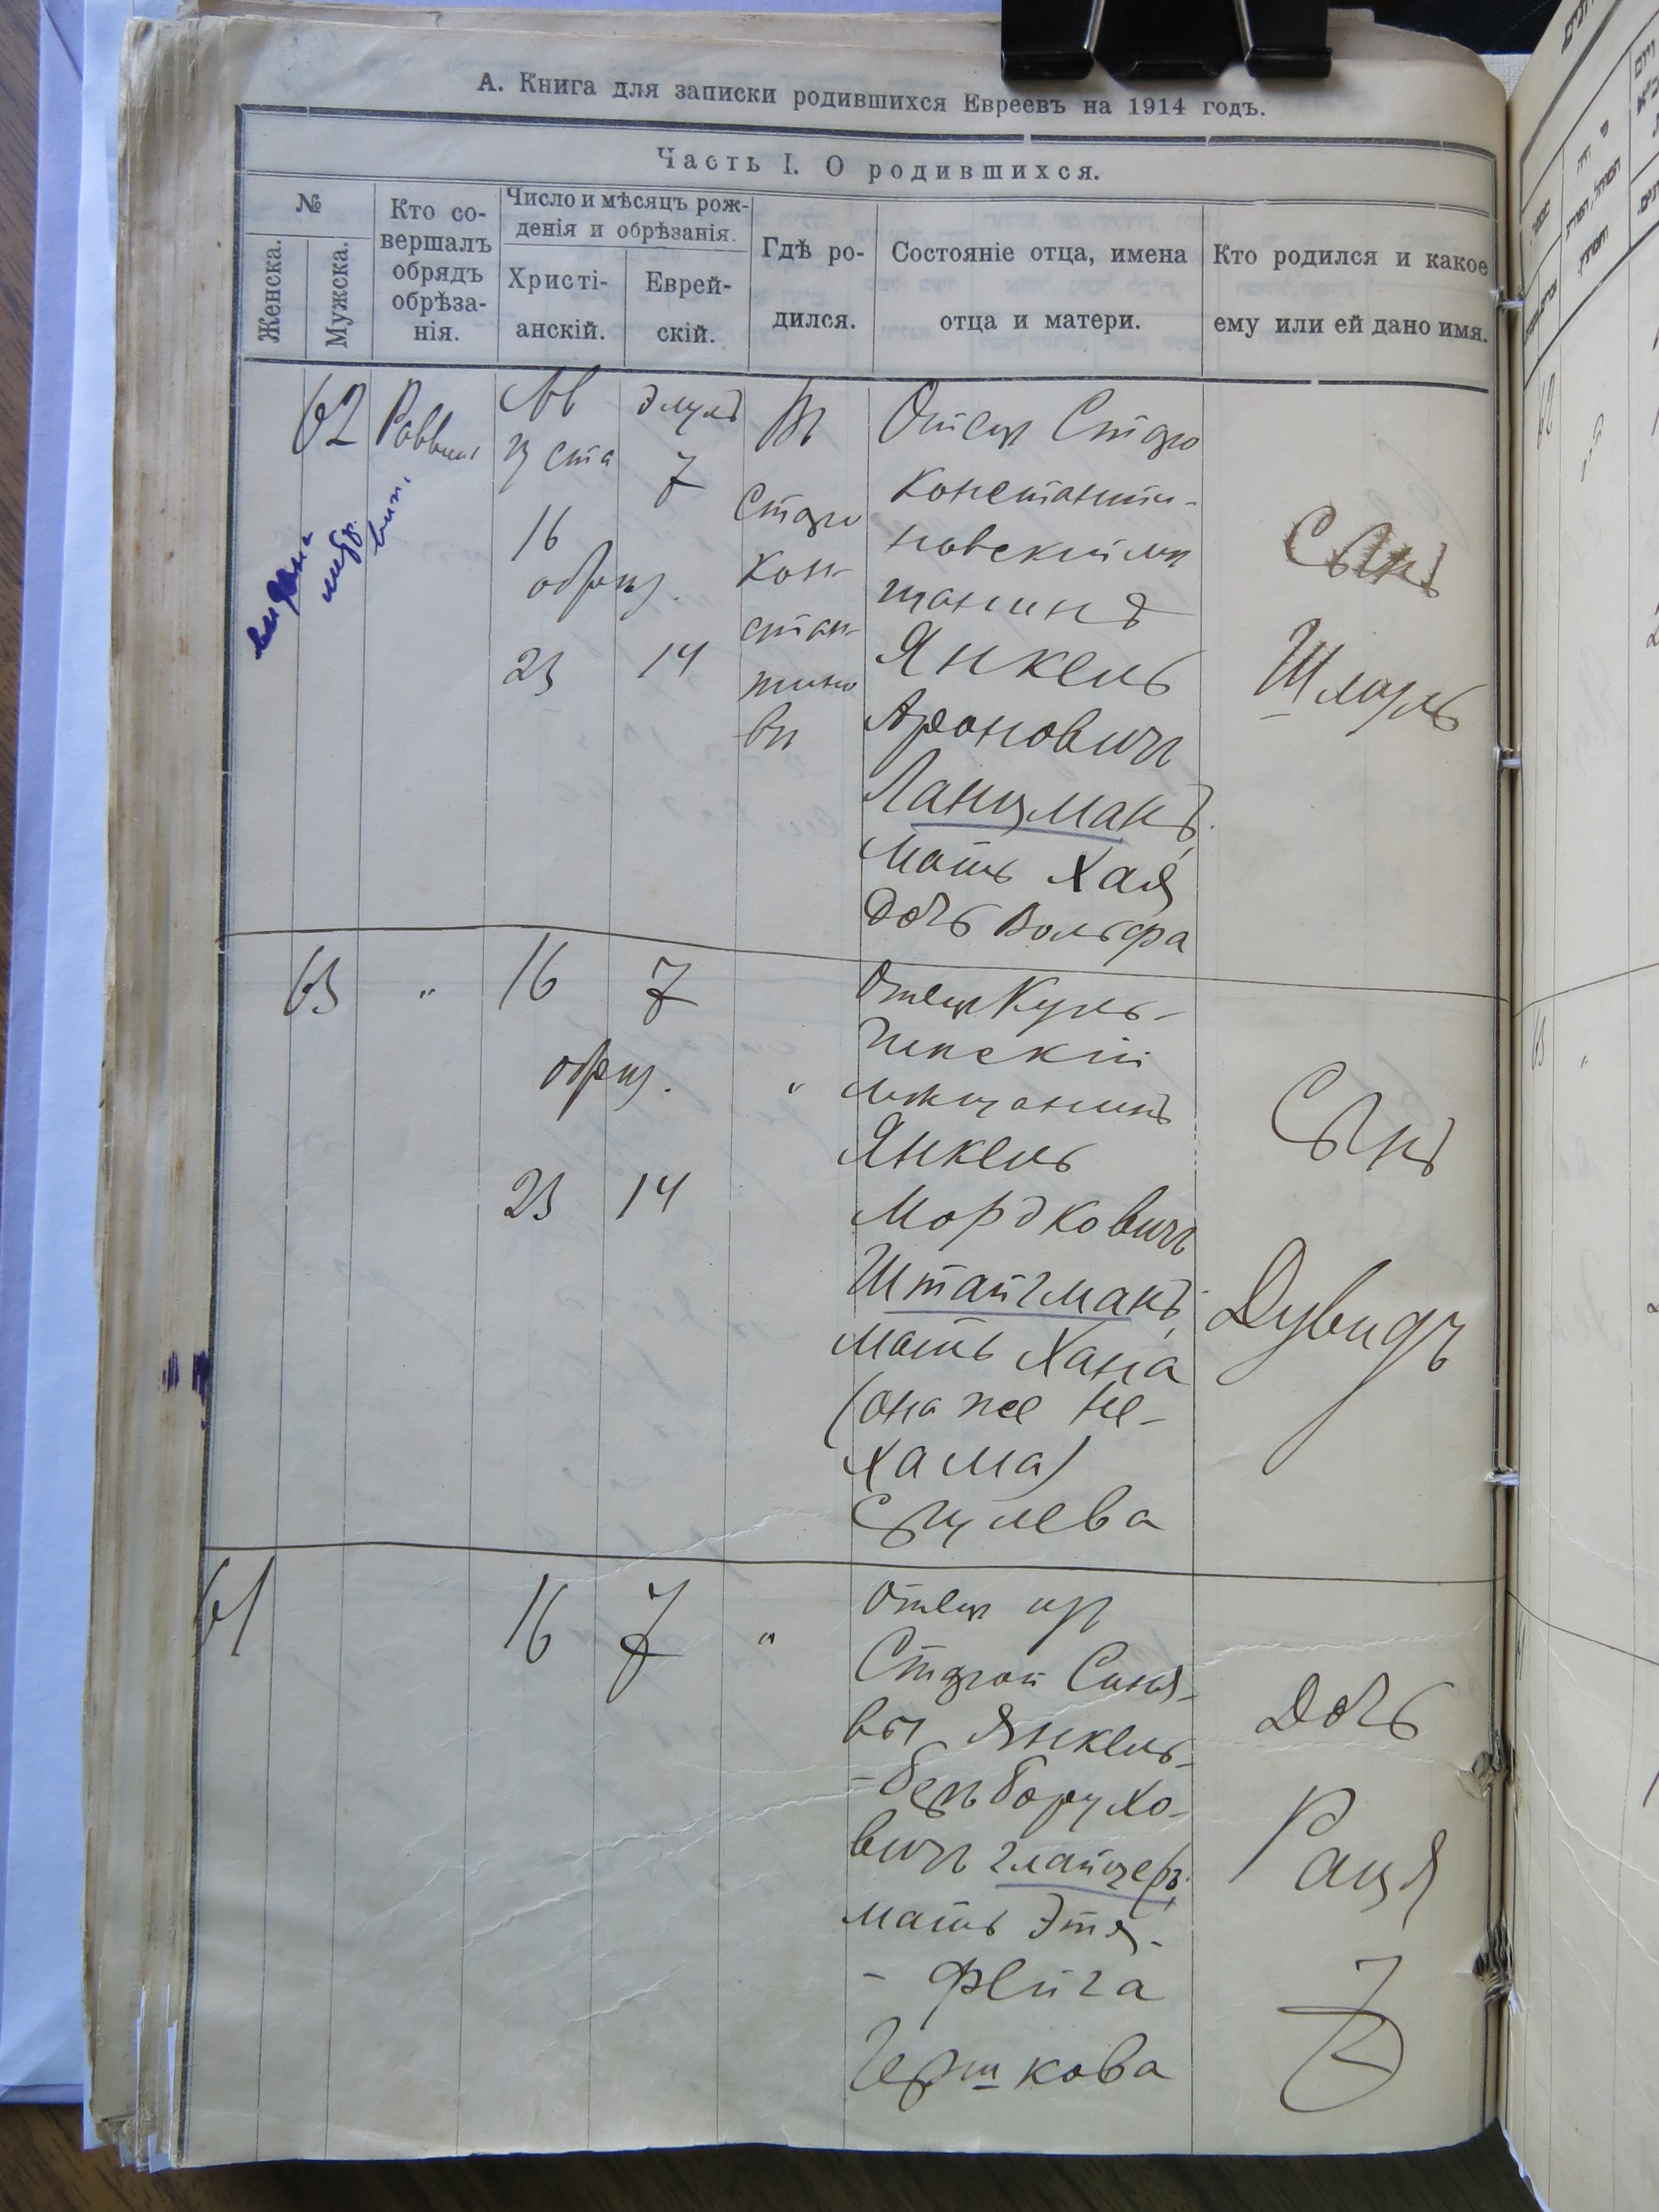 А. Книга для записки родившихся Евреевъ на 1914 годъ.
Часть I. О родившихся.
№
Женска.
Мужска.
Кто со-
вершалъ
обрядъ
обрѣза-
нія.
Число и мѣсяцъ рож-
денія и обрѣзанія.
Христі-
анскій.
Еврей-
скій.
Гдѣ ро-
дился.
Состояніе отца, имена
отца и матери.
Кто родился и какое
ему или ей дано имя.
62
Раввинъ
Ав
густа
16
обрѣз.
23
Элулъ
7
14
Въ
Старо
Кон-
стан-
тино
вѣ
Отецъ Старо
константи-
новскій мѣ
щанинъ
Янкель
Ароновичъ
Ланцманъ,
мать Хая
дочь Вольфа
Сынъ
Шмуль
выдана
метр.
вып.
63
"
16
7
обрѣз.
23
14
"
Отецъ Куль-
чинскій
мѣщанинъ
Янкель
Мордковичъ
Штайгманъ,
мать Хана
(она же Не-
хама)
Сруլева
Сынъ
Дувидъ
61
16
7
"
Отецъ изъ
Старой Синя-
вы Янкель-
-Беръ Борухо-
вичъ Глайзеръ,
мать Этя-
- Фейга
Гершкова
Дочь
Рация